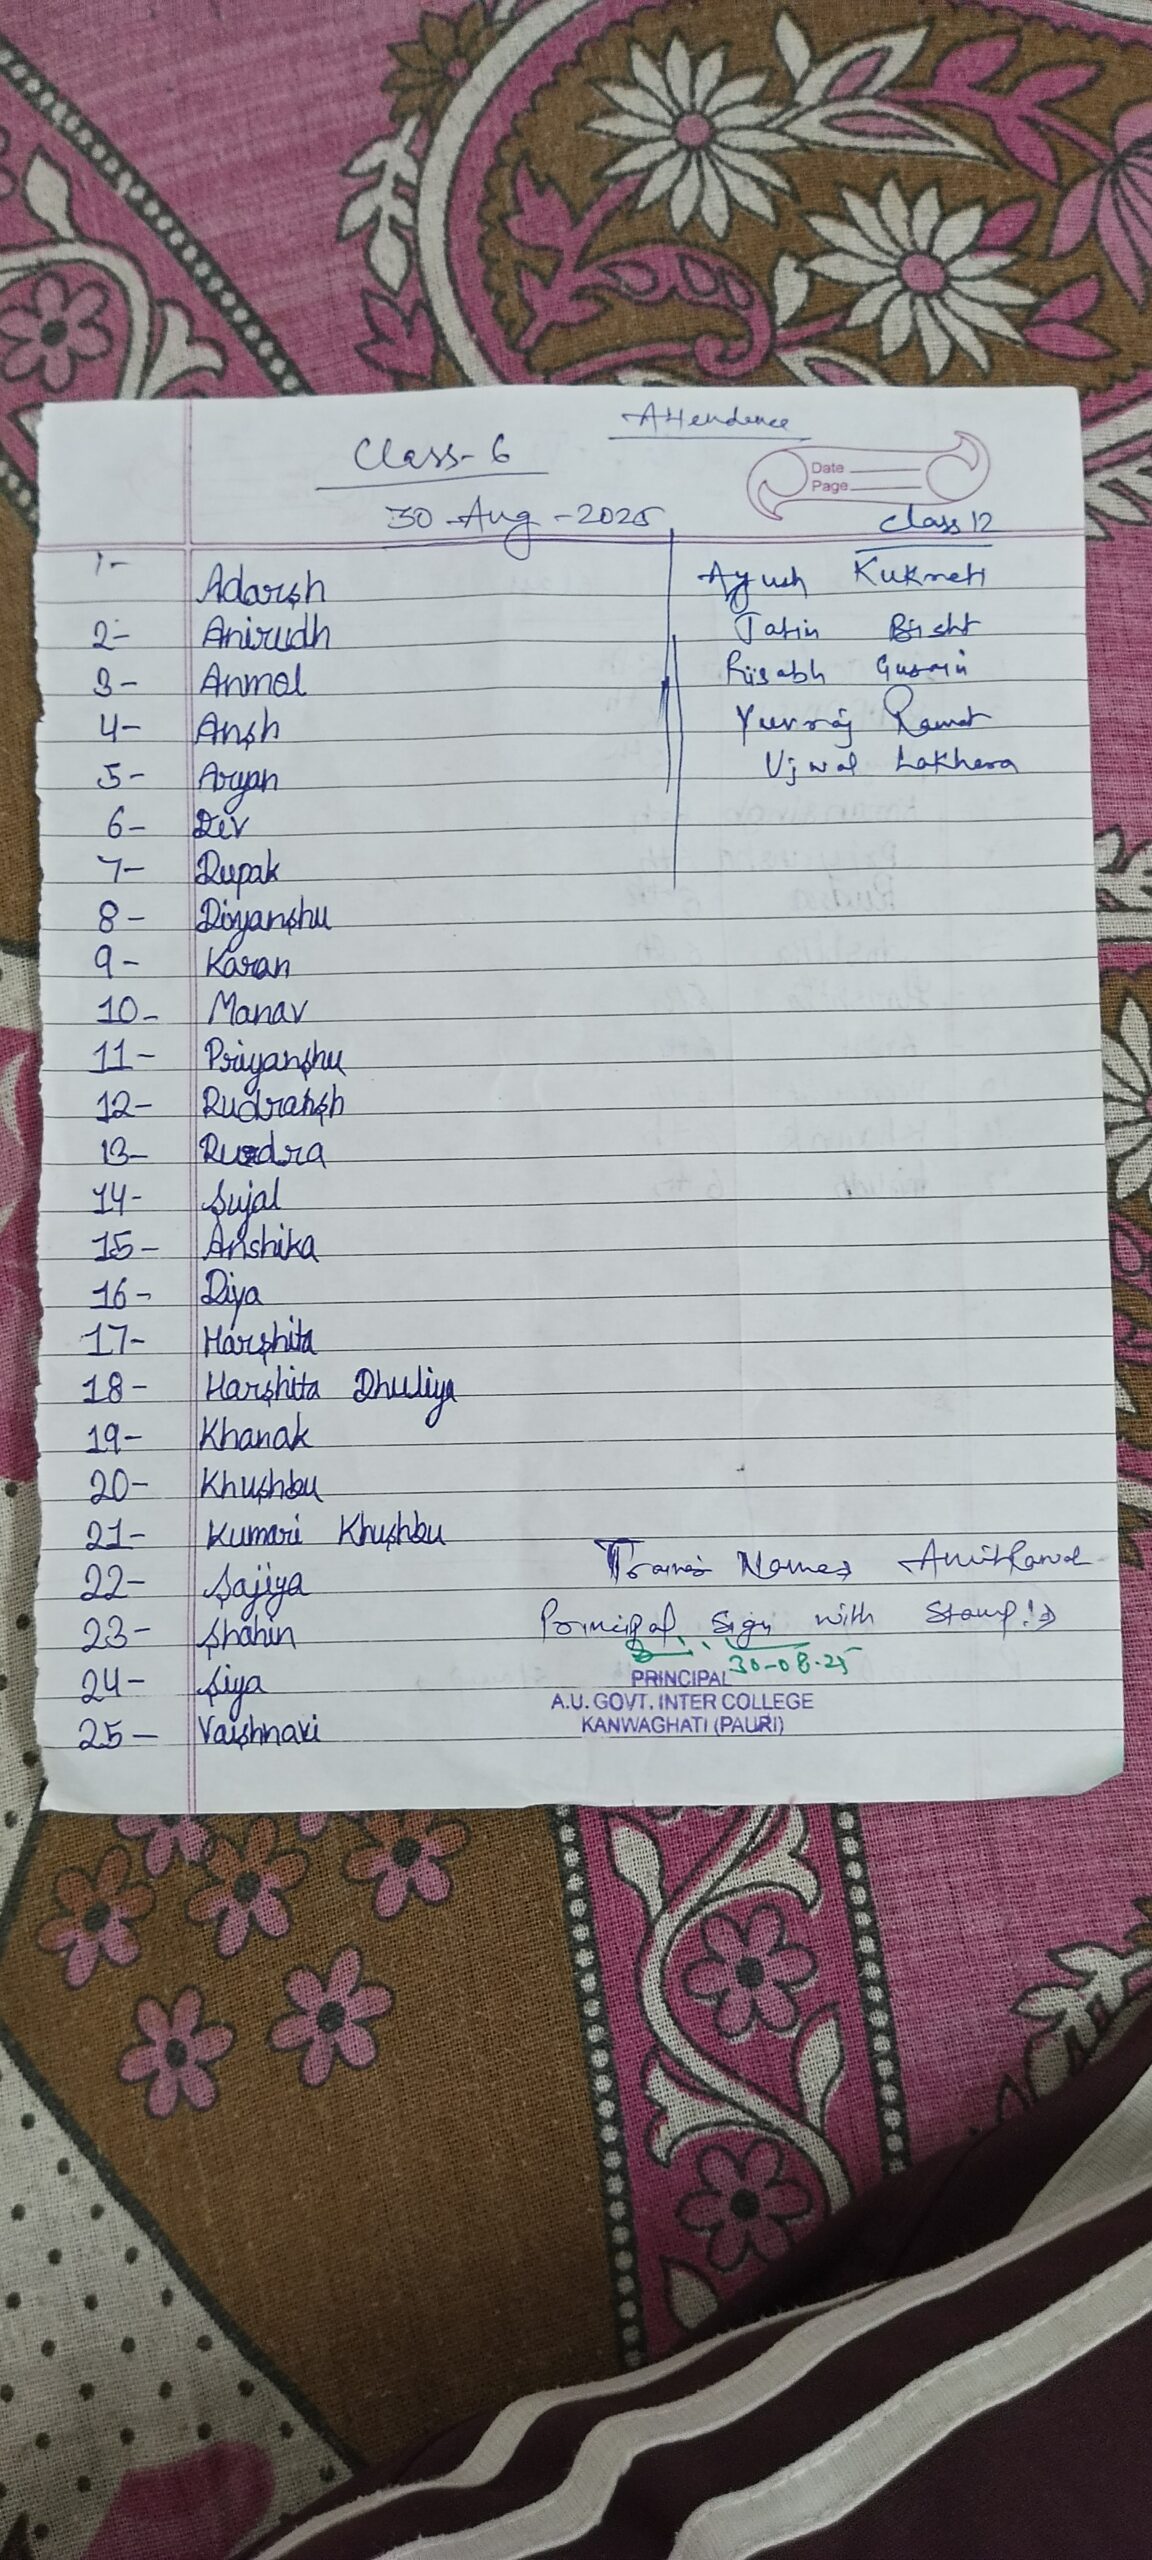 Attendence
Class-6
Date
Page
30-Aug-2025
Class 12
1- Adarsh
2- Anirudh
3- Anmol
4- Ansh
5- Aryan
6- Dev
7- Dupak
8- Divyanshu
9- Karan
10- Manav
11- Priyanshu
12- Rudraksh
13- Rudra
14- Sujal
15- Anshika
16- Diya
17- Harshita
18- Harshita Dhuliya
19- Khanak
20- Khushbu
21- Kumari Khushbu
22- Sajiya
23- Shahin
24- Siya
25- Vaishnavi
Ayush Kukreti
Jatin Bisht
Risabh Gusain
Yuvraj Rawat
Ujwal Lakhera
Names Amit Rawat
Principal Sign with Stamp:→
30-08-25
PRINCIPAL
A.U. GOVT. INTER COLLEGE
KANWAGHATI (PAURI)